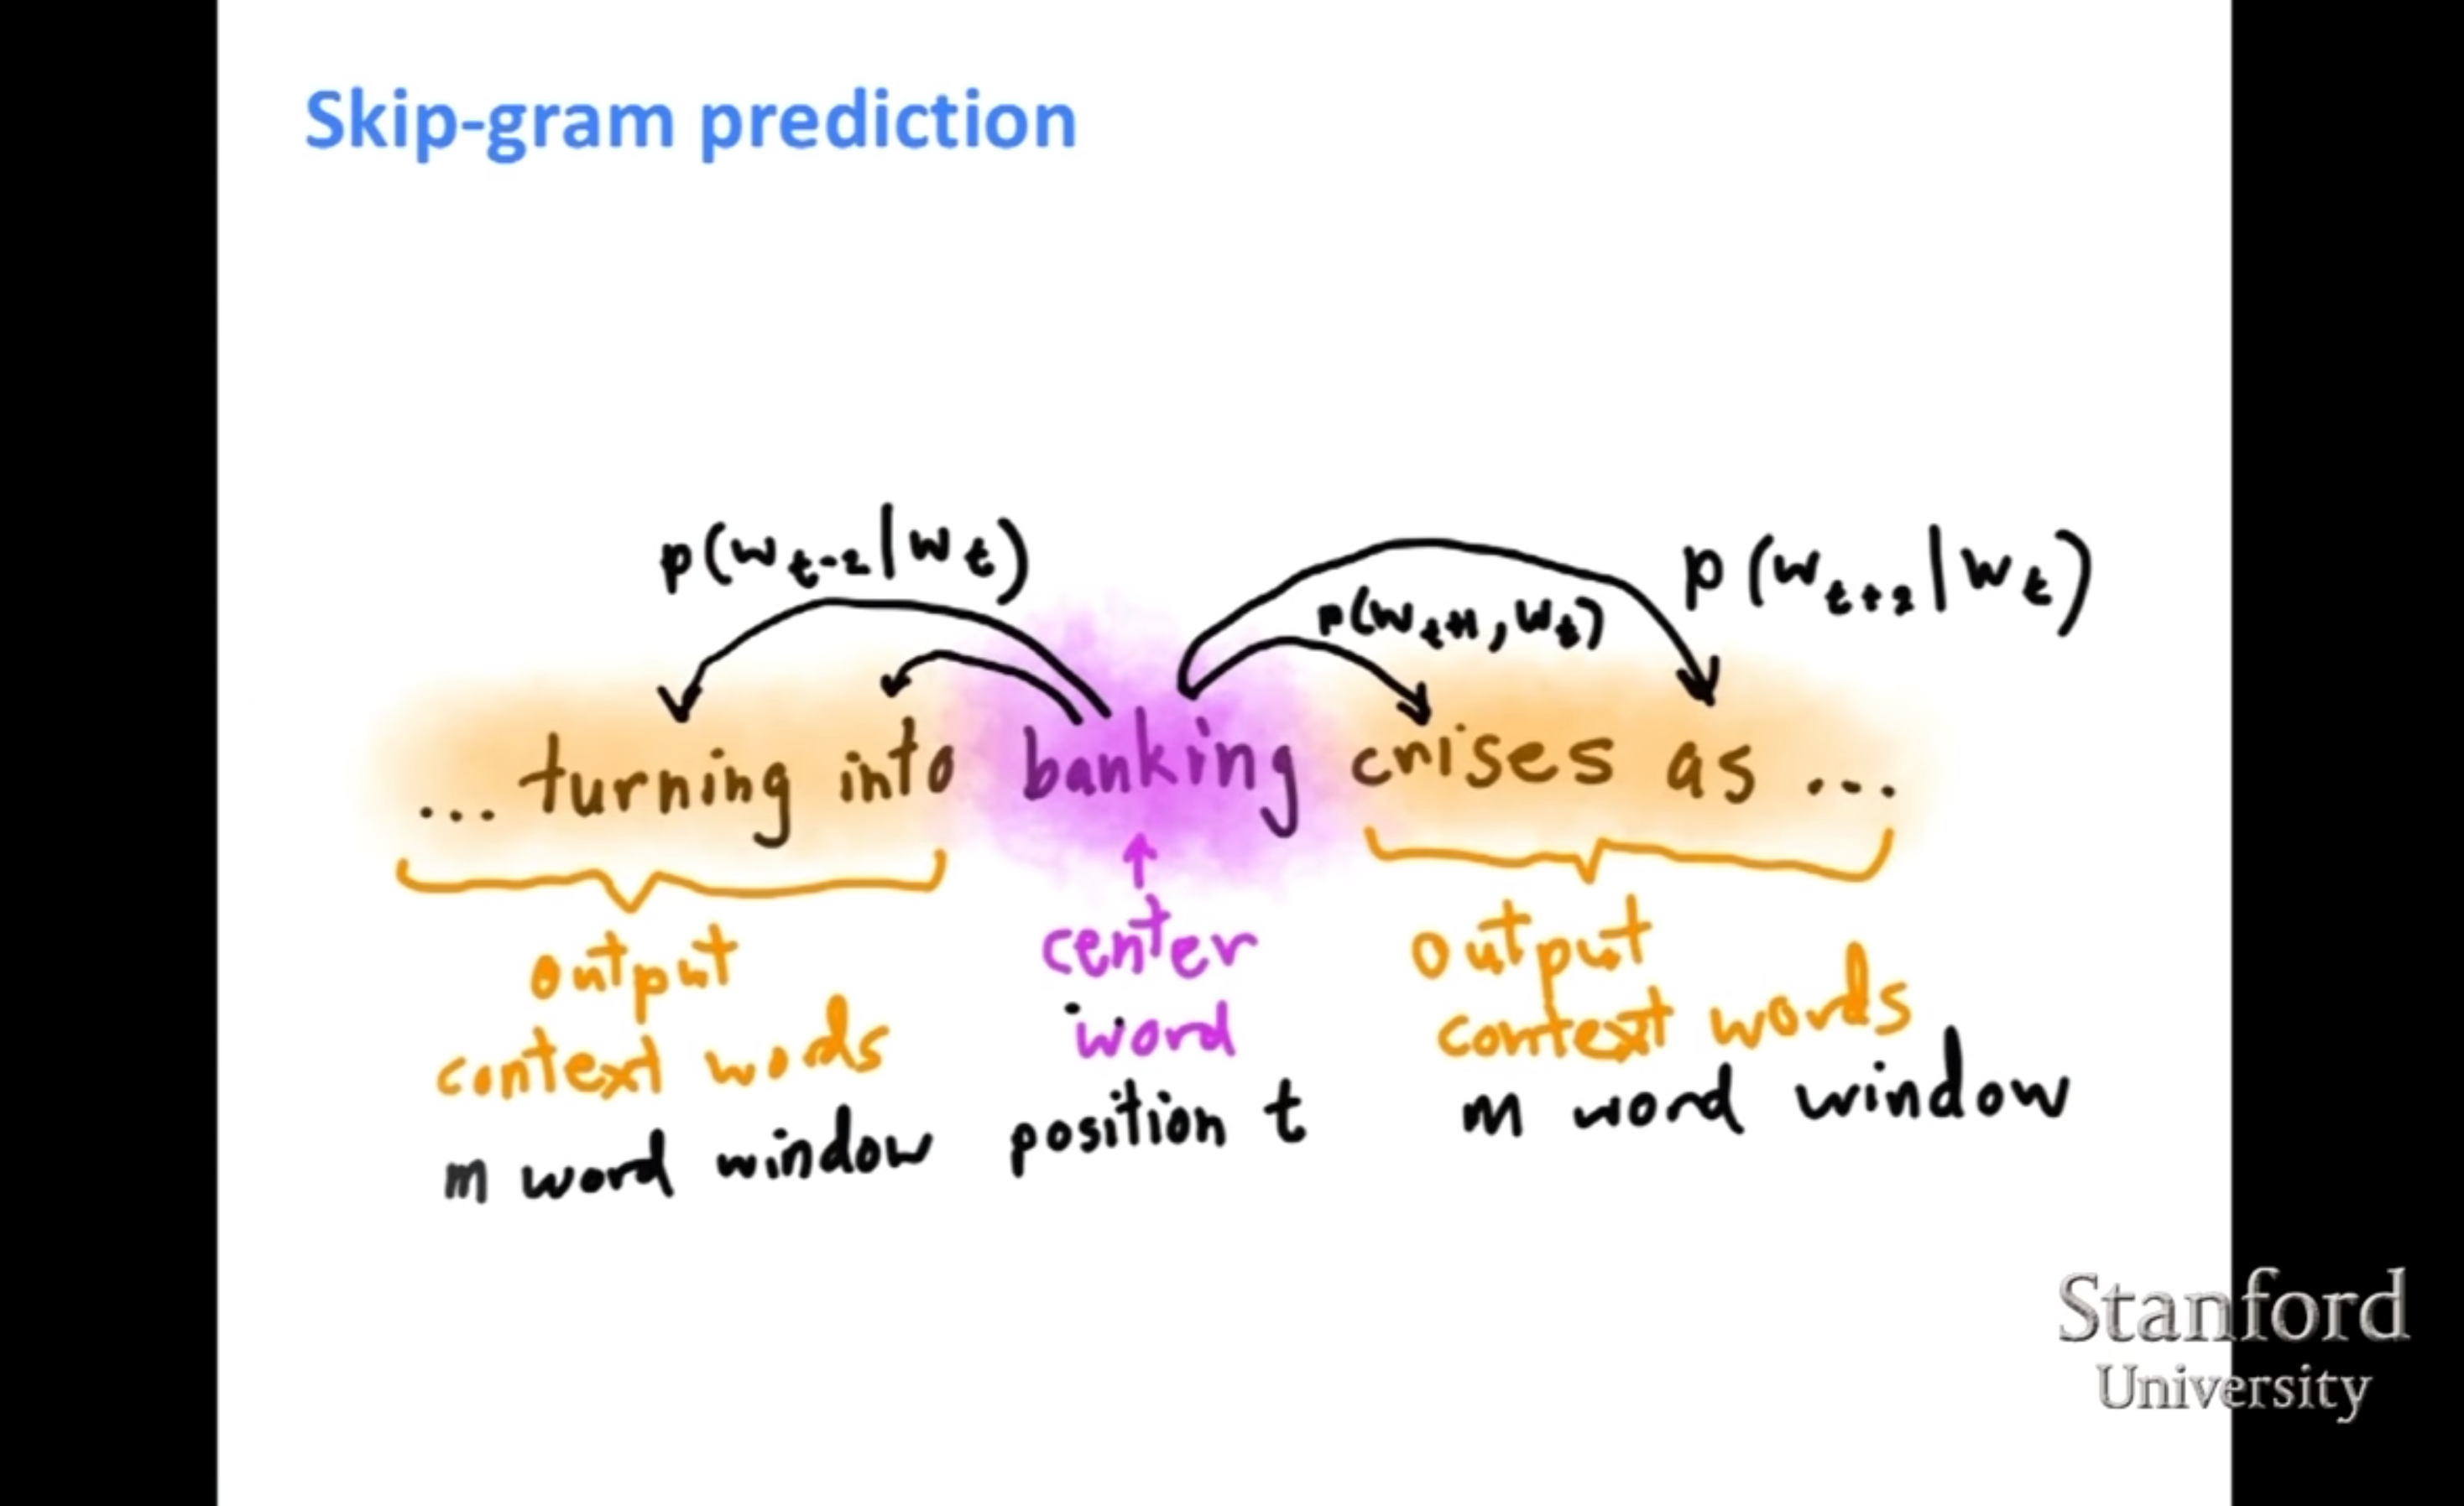 Skip-gram prediction
p(w t-2 | w t)
p(w t+1, w t)
p(w t+2 | w t)
... turning into banking crises as ...
output
context wods
m word window
center
word
position t
output
context words
m word window
Stanford
University